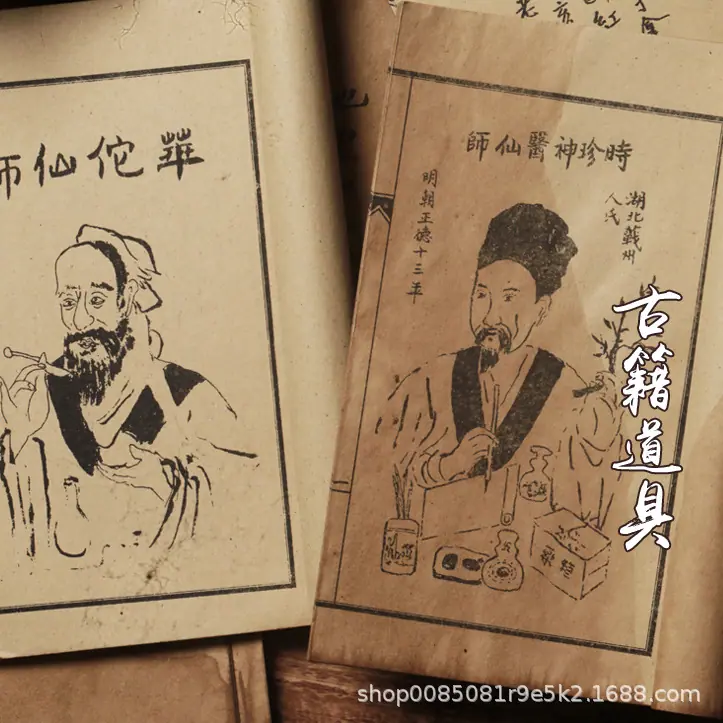 華佗仙師
時珍神醫仙師
湖北蘄州
人氏
明朝正德十三年
古籍道具
shop0085081r9e5k2.1688.com